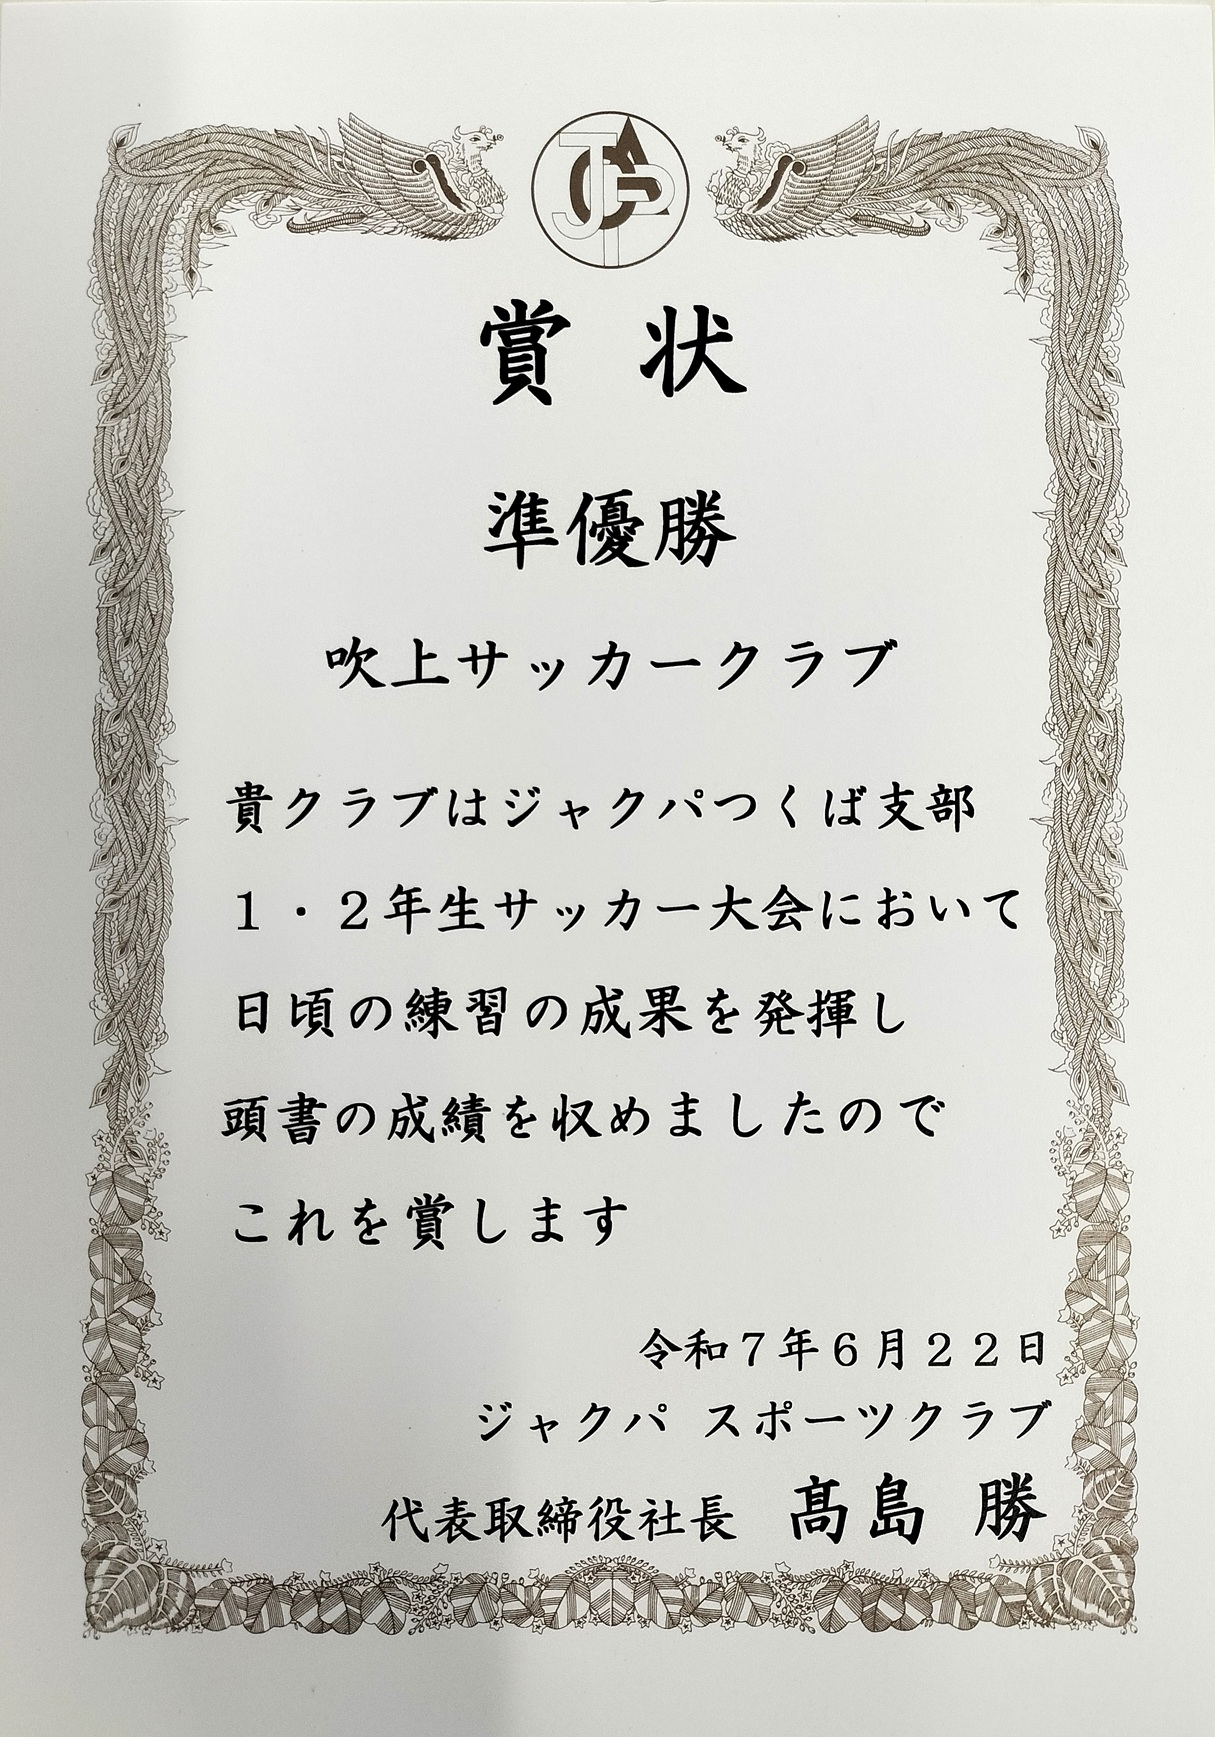 賞 状
準優勝
吹上サッカークラブ
貴クラブはジャクパつくば支部
１・２年生サッカー大会において
日頃の練習の成果を発揮し
頭書の成績を収めましたので
これを賞します
令和７年６月２２日
ジャクパ スポーツクラブ
代表取締役社長 髙島 勝